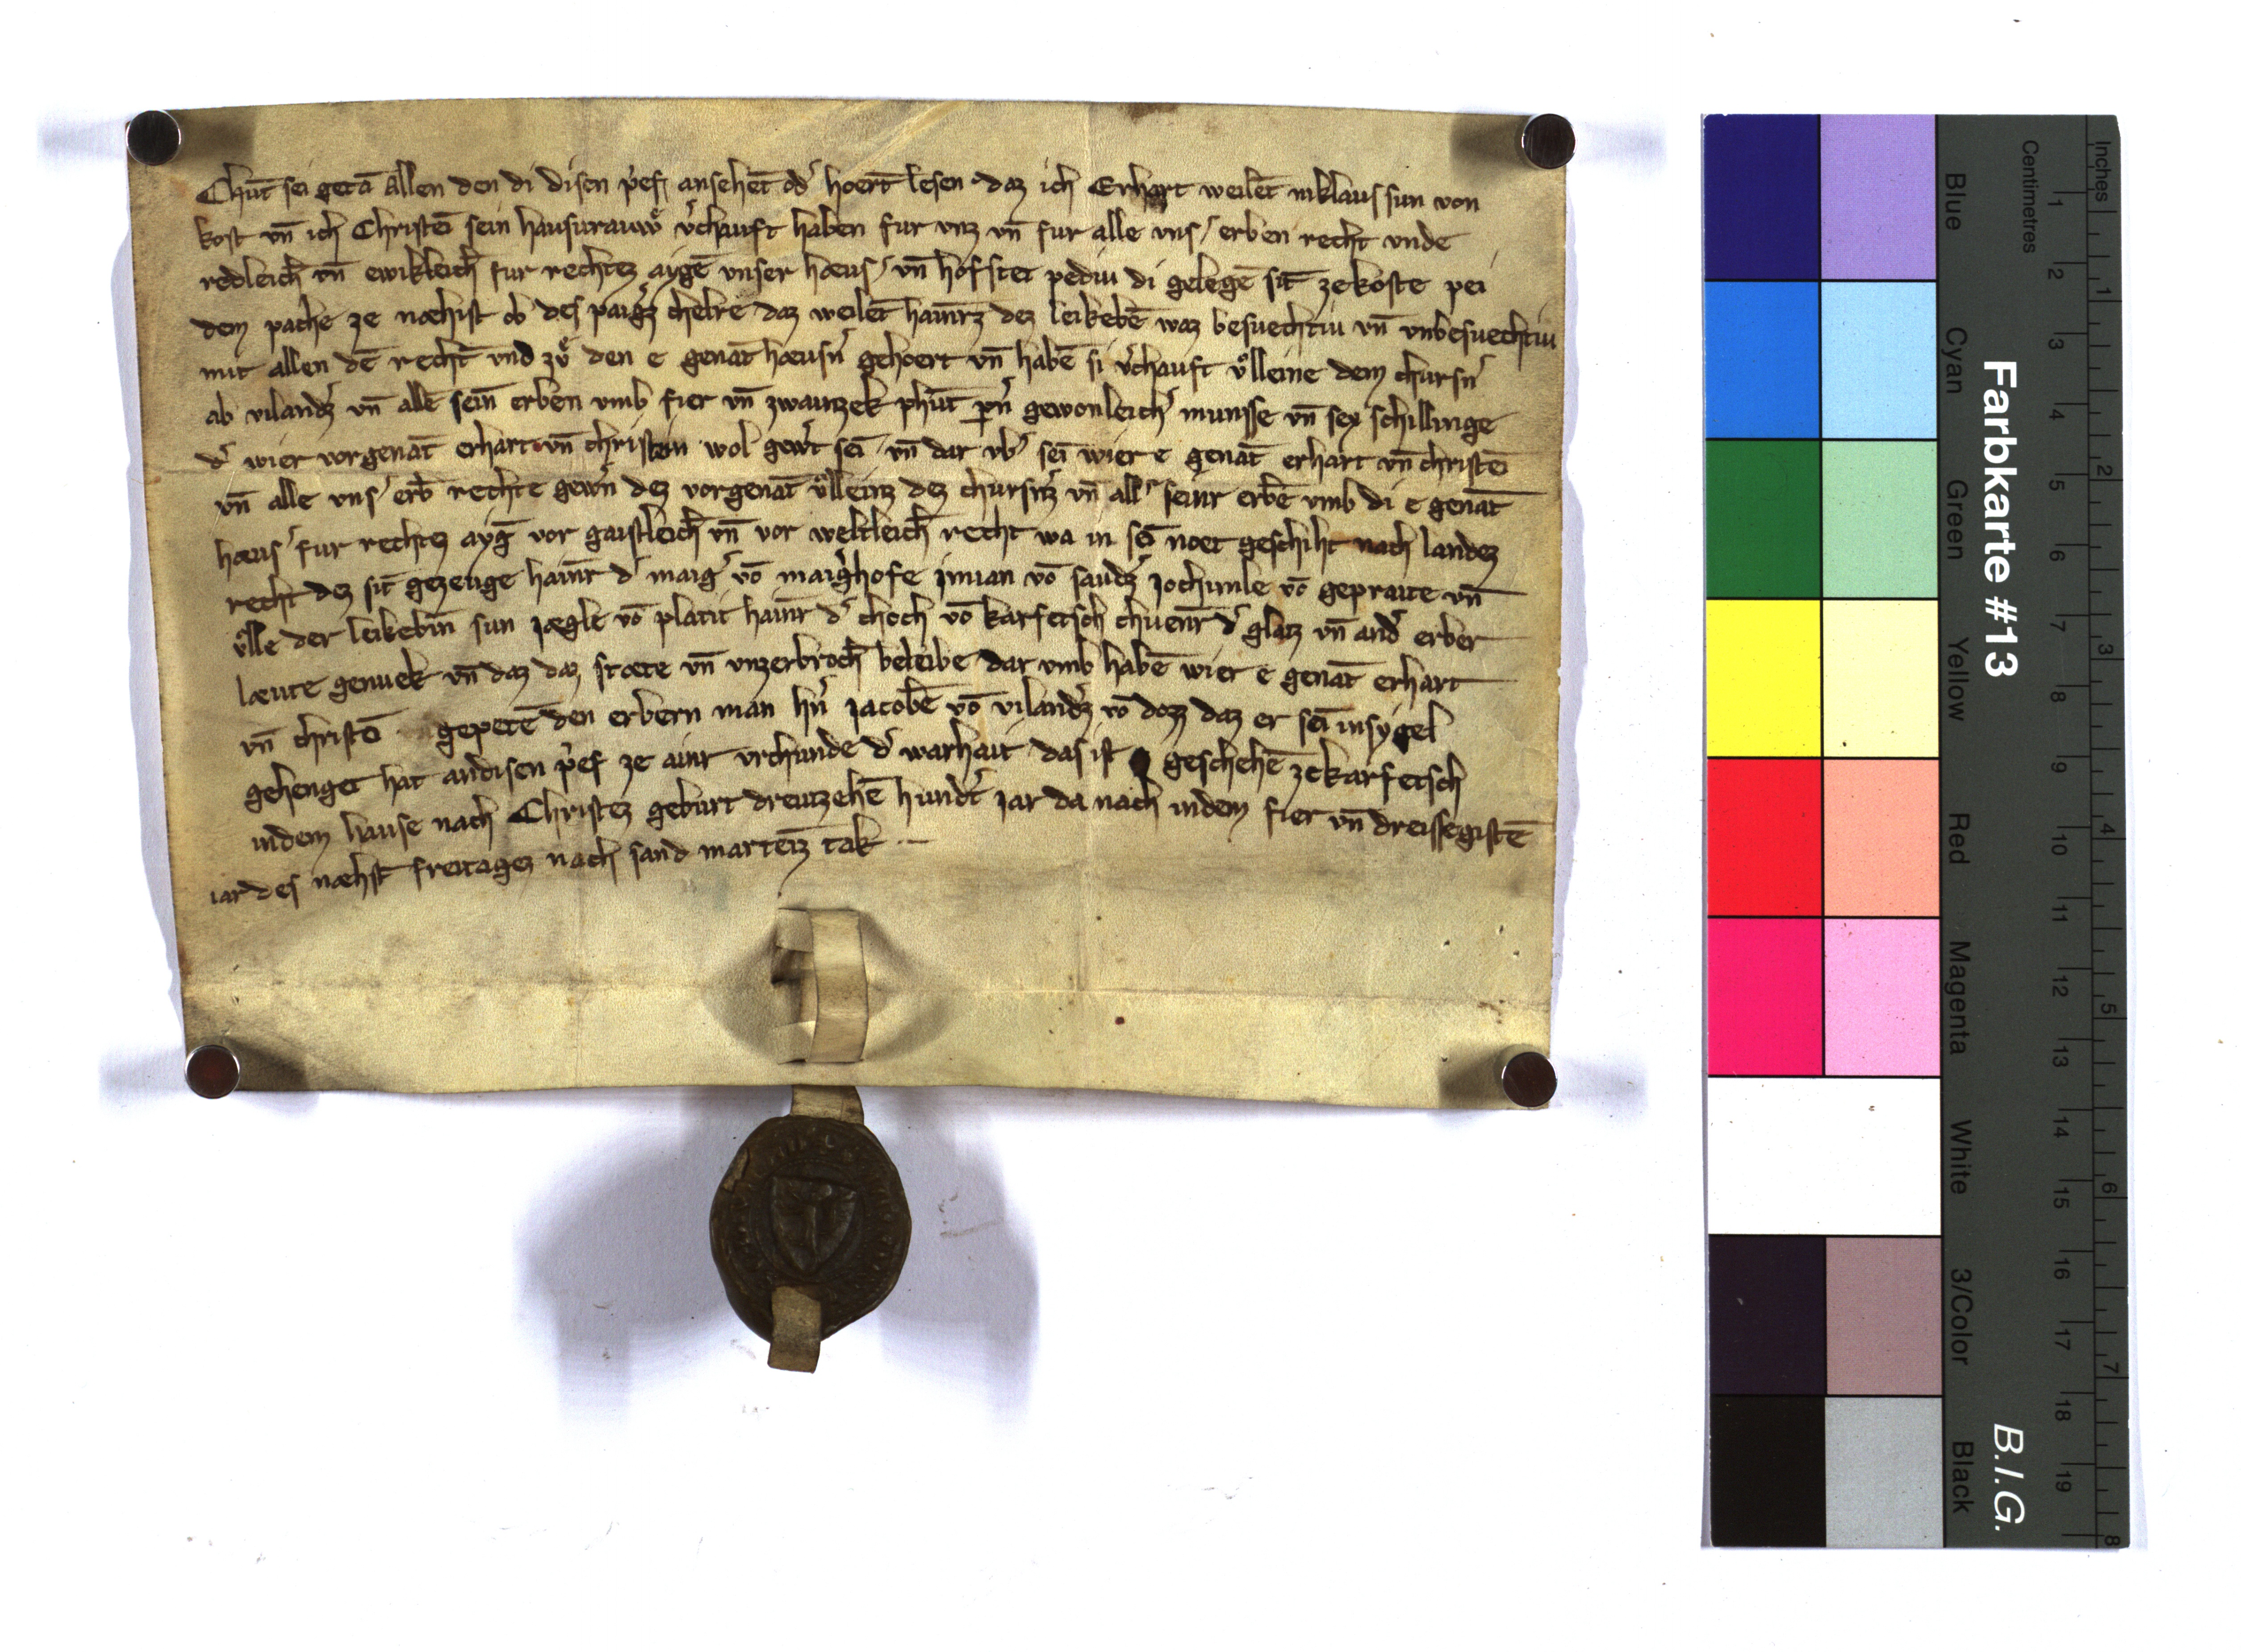 Chūt sei getā allen den di disen p̓ef ansehēt od̓ hoert lesen daz ich Erhart weilēt niklaus sun von
kost vn̄ ich Christē sein hausurauwͤ v̓chauft haben fur vnz vn̄ fur alle vns̓ erben recht vnde
redleich̄ vn̄ ewikleich̄ fur rechtez aygē vnser hæus̓ vn̄ hofstet pediu di gelegē sīt zekoste pei
dem pache ze næchist ob des paig̓z chelre daz weilēt hainr̄z dez leikebē waz besuechtiu vn̄ vnbesuechtiu
mit allen dē recht̄ vnd zvͤ den e genāt hæusn̓ gehoert vn̄ habē si v̓chauft vͦlleine dem chursn̓
ab vilandz̓ vn̄ allē sein̄ erben vmb fier vn̄ zwainzek phūt pn̓ gewonleich̓ munsse vn̄ sex schillinge
d̓ wier vorgenāt erhart vn̄ christein wol gew̓t sei vn̄ dar vb̓ sei wier e genāt erhart vn̄ christē
vn̄ alle vns̓ erb̄ rechte gew̓n dez vorgenāt vͦlleinz dez chursn̄z vn̄ all̓ seinr erbē vmb di e genāt
hæus̓ fur rechtez ayḡ vor gaistleich̄ vn̄ vor weltleich̄ recht wa in sei noet geschiht nach landez
recht dez sīt gezeuge hainr̄ d̓ maig̓ vō maig̓hofe jnuan vō saudz̓ jochimle vō gepraite vn̄
vͦlle der leikebin̄ sun jægle vō platit hainr̄ d̓ choch vō karfetsch chuenr̄ d̓ glatz vn̄ and̓ erber
læute genuek vn̄ daz daz stæte vn̄ vnzerbroch̄ beleibe dar vmb habē wier e genāt erhart
vn̄ christē gepetē den erbern man hn̓ jacobē vō vilandz̓ vō dozz daz er sei insygel
gehenget hat andisen p̓ef ze ainr vrchunde d̓ warhait das ist geschehē zekarfetsch
indem hause nach Christez geburt dreuzehē hund̓t jar da nach indem fier vn̄ dreissegistē
iar des næhst freitagez nach sand martēiz tak
Farbkarte #13
B.I.G.
Centimetres
Inches
Blue
Cyan
Green
Yellow
Red
Magenta
White
3/Color
Black
1 2 3 4 5 6 7 8 9 10 11 12 13 14 15 16 17 18 19
1 2 3 4 5 6 7 8